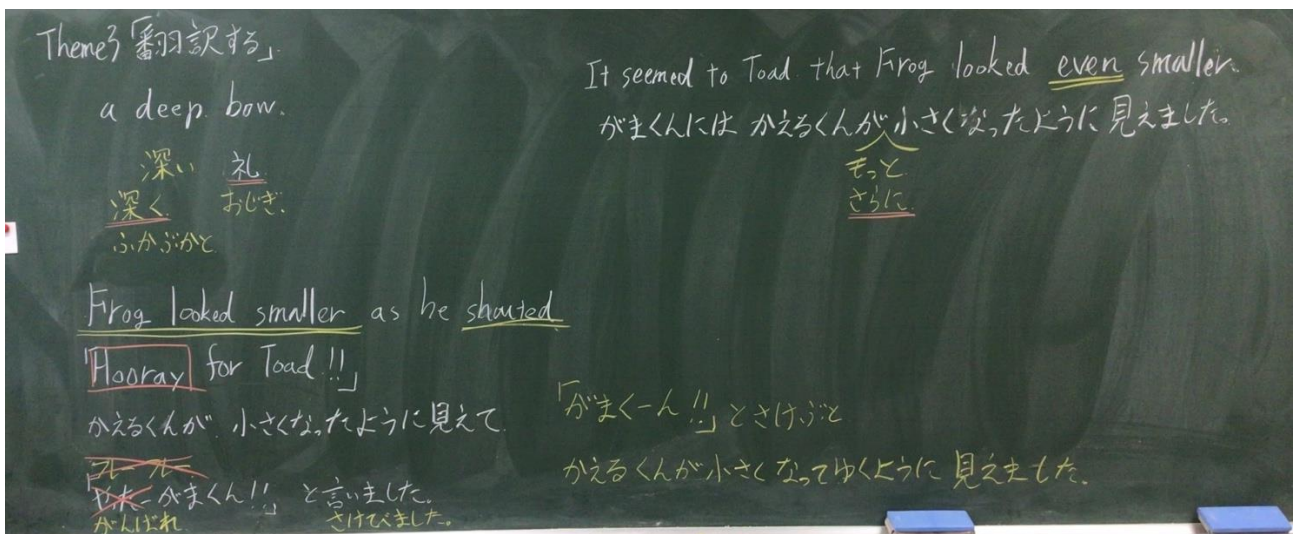 Theme3「翻訳する」
a deep bow.
深い 礼
深く おじぎ.
ふかぶかと
Frog looked smaller as he shouted
「Hooray for Toad!!」
かえるくんが 小さくなったように見えて
フレーフレー
「 がまくん!!」と言いました。
がんばれ さけびました。
It seemed to Toad that Frog looked even smaller.
がまくんには かえるくんが 小さくなったように 見えました。
もっと
さらに
「がまくーん!!」とさけぶと
かえるくんが小さくなってゆくように 見えました。